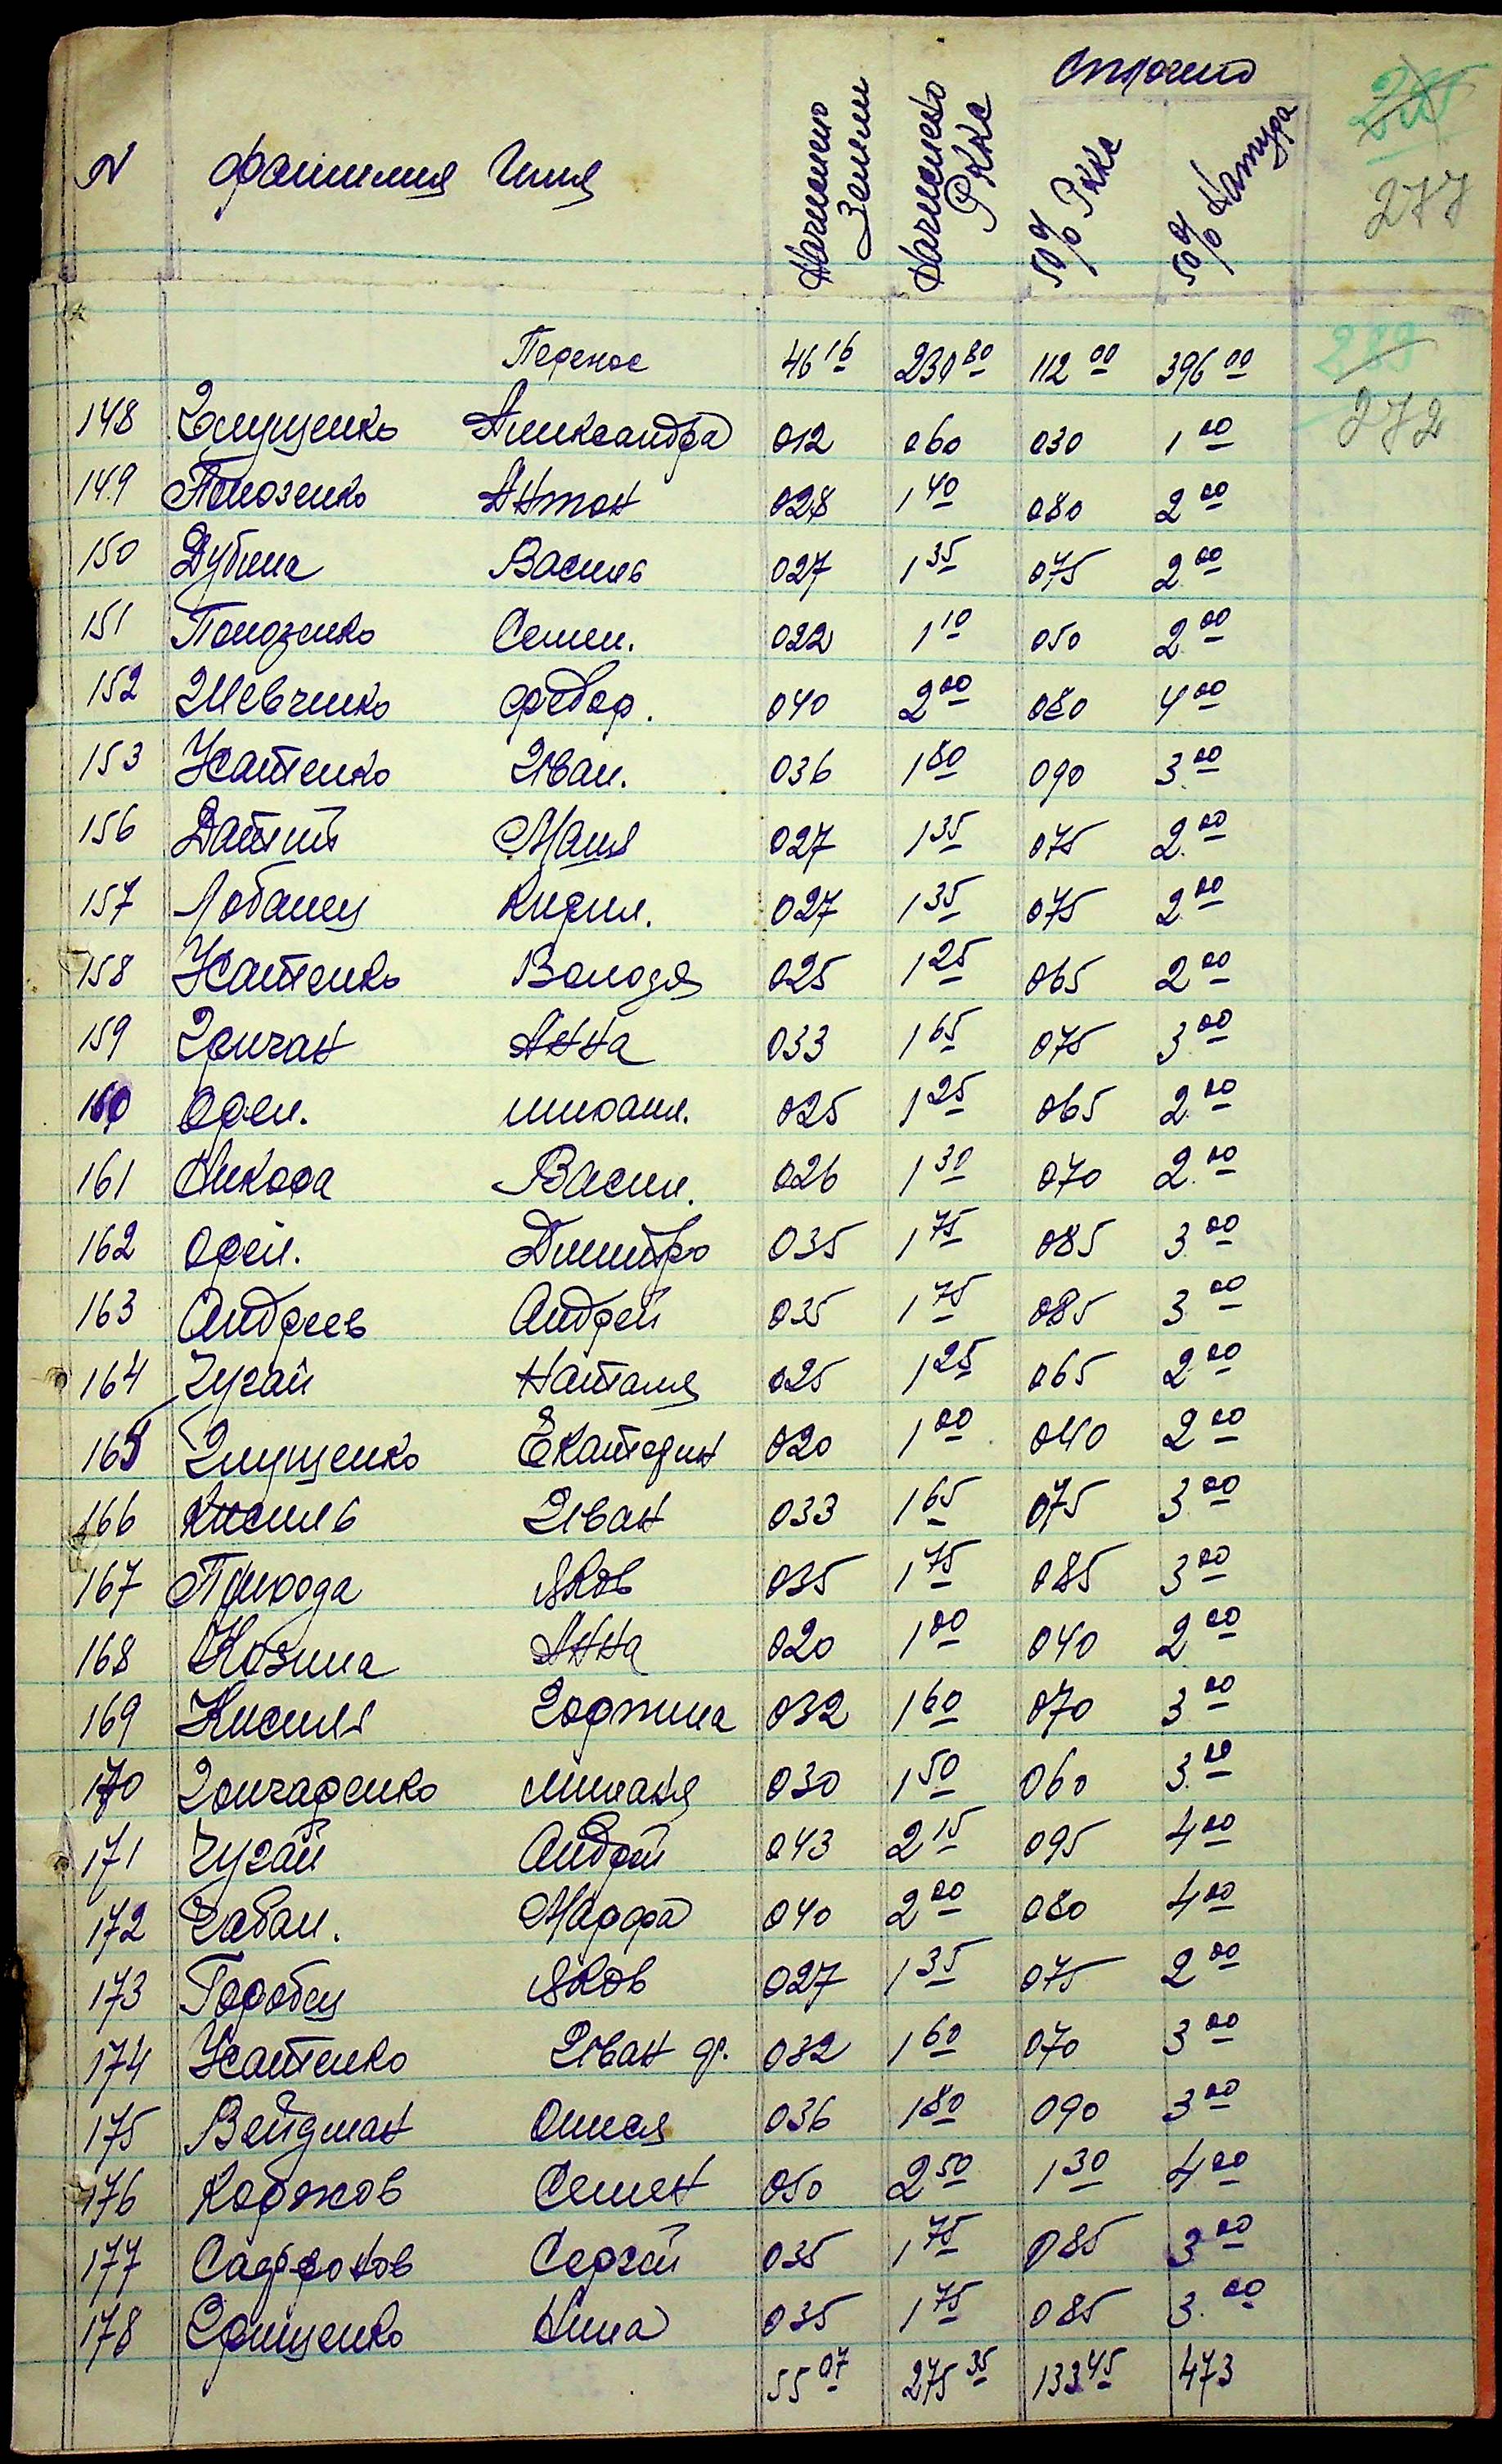 Оплочено
N Фамилия Имя Начислено Земли Начислено Ркка 50% Ркка 50% Натура
277
Перенос 46 16 230 80 112 00 396 00
289
272
148 Глущенко Александра 012 060 030 1 00
149 Полозенко Антон 028 1 40 080 2 00
150 Дубина Василь 027 1 35 075 2 00
151 Полозенко Семен. 022 1 10 050 2 00
152 Шевченко Федор. 040 2 00 080 4 00
153 Усатенко Иван. 036 1 80 090 3 00
156 Маня 027 1 35 075 2 00
157 Лобанец Кирил. 027 1 35 075 2 00
158 Усатенко Володя 025 1 25 065 2 00
159 Гончан Анна 033 1 65 075 3 00
160 Орел. михаил. 025 1 25 065 2 00
161 Васил. 026 1 30 070 2 00
162 Орел. Дмитро 035 1 75 085 3 00
163 Андреев Андрей 035 1 75 085 3 00
164 Чугай Наталя 025 1 25 065 2 00
165 Глущенко Екатерин 020 1 00 040 2 00
166 Кисиль Иван 033 1 65 075 3 00
167 Прихода Яков 035 1 75 085 3 00
168 Козина Анна 020 1 00 040 2 00
169 Кисиль Горпина 032 1 60 070 3 00
170 Гончаренко 030 1 50 060 3 00
171 Чугай Андрей 043 2 15 095 4 00
172 Чабан. Марфа 040 2 00 080 4 00
173 Горобец Яков 027 1 35 075 2 00
174 Усатенко Иван 032 1 60 070 3 00
175 Вейдман 036 1 80 090 3 00
176 Коржов Семен 050 2 50 1 30 4 00
177 Сафронов Сергей 035 1 75 085 3 00
178 Грищенко Нина 035 1 75 085 3 00
55 07 275 35 133 45 473